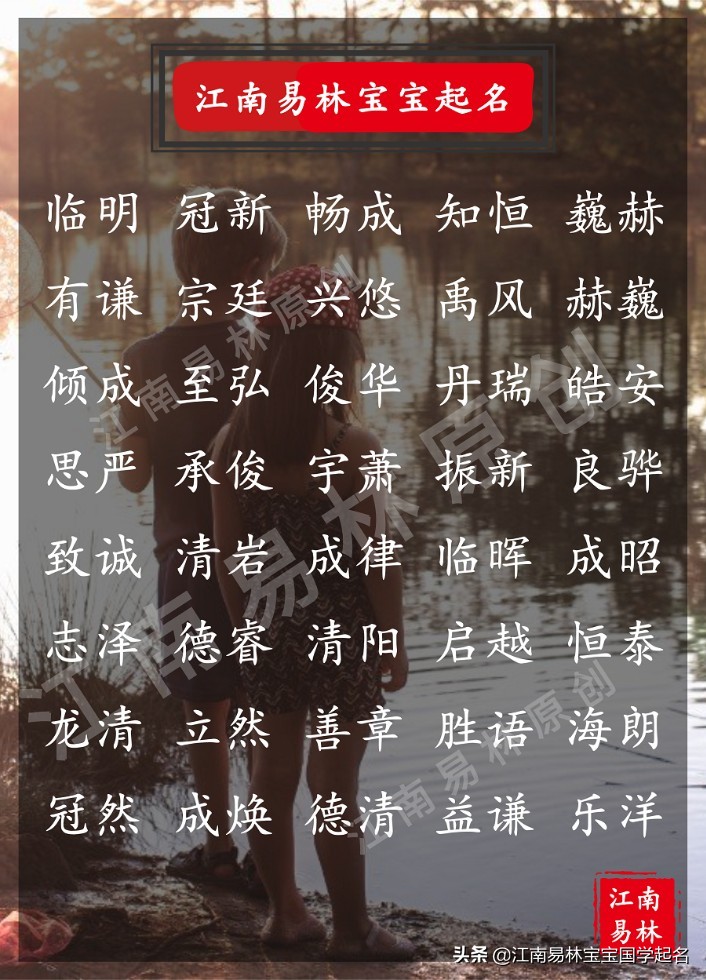 江南易林宝宝起名
临明 冠新 畅成 知恒 巍赫
有谦 宗廷 兴悠 禹风 赫巍
倾成 至弘 俊华 丹瑞 皓安
思严 承俊 宇萧 振新 良骅
致诚 清岩 成律 临晖 成昭
志泽 德睿 清阳 启越 恒泰
龙清 立然 善章 胜语 海朗
冠然 成焕 德清 益谦 乐洋
江南易林原创
江南易林原创
江南易林原创
江南
易林
头条 @江南易林宝宝国学起名